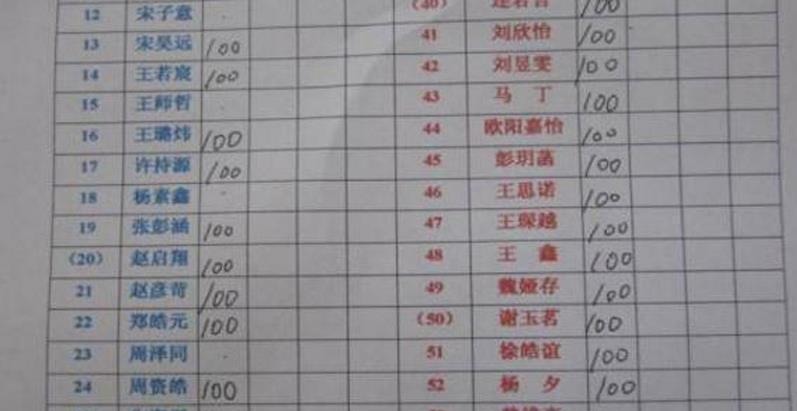 12 宋子意 (40) 100
13 宋昊远 100 41 刘欣怡 100
14 王若宸 100 42 刘昱雯 100
15 王师哲 43 马丁 100
16 王璐炜 100 44 欧阳嘉怡 100
17 许持源 100 45 彭玥菡 100
18 杨素鑫 46 王思诺 100
19 张彭涵 100 47 王琛越 100
(20) 赵启翔 100 48 王鑫 100
21 赵彦苛 100 49 魏娅存 100
22 郑皓元 100 (50) 谢玉茗 100
23 周泽同 51 徐皓谊 100
24 周资皓 100 52 杨夕 100